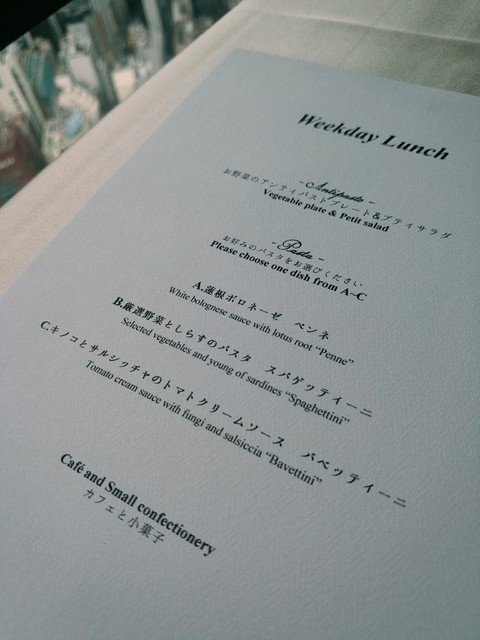 Weekday Lunch
-Antipasto-
お野菜のアンティパストプレート&プティサラダ
Vegetable plate & Petit salad
-Pasta-
お好みのパスタをお選びください
Please choose one dish from A~C
A.蓮根ボロネーゼ　ペンネ
White bolognese sauce with lotus root "Penne"
B.厳選野菜としらすのパスタ　スパゲッティーニ
Selected vegetables and young of sardines "Spaghettini"
C.キノコとサルシッチャのトマトクリームソース　バベッティーニ
Tomato cream sauce with fungi and salsiccia "Bavettini"
Café and Small confectionery
カフェと小菓子